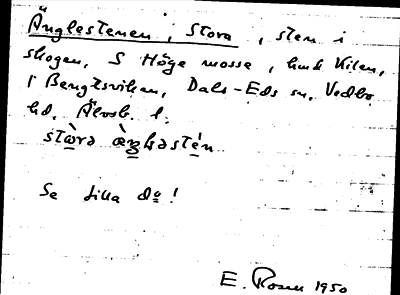 Änglestenen, Stora, sten i
skogen, S Höge mosse, hmd Kilen,
i Bengtsviken, Dals-Eds sn, Vedbo
hd, Älvsb. l.
Se Lilla do!
E. Rosen 1950